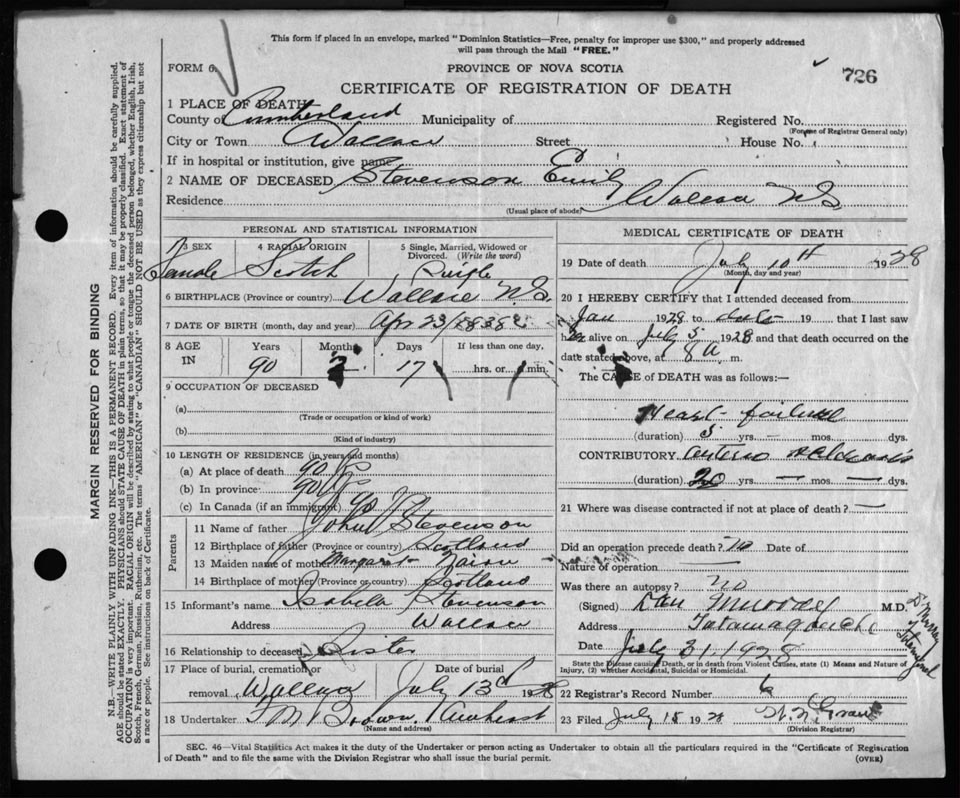 This form if placed in an envelope, marked "Dominion Statistics—Free, penalty for improper use $300," and properly addressed
will pass through the Mail "FREE."
FORM 6
PROVINCE OF NOVA SCOTIA
726
CERTIFICATE OF REGISTRATION OF DEATH
1 PLACE OF DEATH
County of Cumberland Municipality of Registered No.
(For use of Registrar General only)
City or Town Wallace Street House No.
If in hospital or institution, give name
2 NAME OF DECEASED Stevenson Emily
Residence Wallace N.S.
(Usual place of abode)
PERSONAL AND STATISTICAL INFORMATION
3 SEX 4 RACIAL ORIGIN 5 Single, Married, Widowed or Divorced. (Write the word)
Female Scotch Single
6 BIRTHPLACE (Province or country) Wallace N.S.
7 DATE OF BIRTH (month, day and year) Apr 23/1838
8 AGE IN Years Months Days If less than one day,
90 2 17 hrs. or min.
9 OCCUPATION OF DECEASED
(a)
(Trade or occupation or kind of work)
(b)
(Kind of industry)
10 LENGTH OF RESIDENCE (in years and months)
(a) At place of death 90 yrs
(b) In province 90 yrs
(c) In Canada (if an immigrant) 90
Parents
11 Name of father John Stevenson
12 Birthplace of father (Province or country) Scotland
13 Maiden name of mother Margaret
14 Birthplace of mother (Province or country) Scotland
15 Informant's name Isabela Stevenson
Address Wallace
16 Relationship to deceased Sister
17 Place of burial, cremation or removal Wallace Date of burial July 13 1928
18 Undertaker Brown Amherst
(Name and address)
MEDICAL CERTIFICATE OF DEATH
19 Date of death July 10th 1928
(Month, day and year)
20 I HEREBY CERTIFY that I attended deceased from
Jan 1928 to date 19 that I last saw
her alive on July 5 1928 and that death occurred on
date stated above, at 8 a m.
The CAUSE of DEATH was as follows:—
Heart failure
(duration) 5 yrs. — mos. dys.
CONTRIBUTORY Arterio sclerosis
(duration) 20 yrs. — mos. — dys.
21 Where was disease contracted if not at place of death? —
Did an operation precede death? no Date of
Nature of operation
Was there an autopsy? no
(Signed) Dan Murray M.D.
Address Tatamagouche
July 31, 1928
Dr Murray
State the Disease causing Death, or in death from Violent Causes, state (1) Means and Nature of
Injury, (2) whether Accidental, Suicidal or Homicidal.
22 Registrar's Record Number 6
23 Filed July 15 1928
(Division Registrar)
SEC. 46—Vital Statistics Act makes it the duty of the Undertaker or person acting as Undertaker to obtain all the particulars required in the "Certificate of Registration
of Death" and to file the same with the Division Registrar who shall issue the burial permit. (OVER)
MARGIN RESERVED FOR BINDING
N.B.—WRITE PLAINLY WITH UNFADING INK—THIS IS A PERMANENT RECORD. Every item of information should be carefully supplied.
AGE should be stated EXACTLY. PHYSICIANS should STATE CAUSE OF DEATH in plain terms, so that it may be properly classified. Exact statement of
OCCUPATION is very important. RACIAL ORIGIN will be described by stating to what people or tongue the deceased person belonged, whether English, Irish,
Scotch, French, German, Russian, Ruthenian, etc. The terms "AMERICAN" or "CANADIAN" SHOULD NOT BE USED as they express citizenship but not
a race or people. See instructions on back of Certificate.